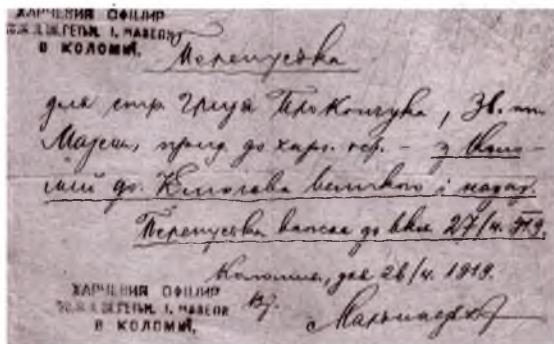 ХАРЧЕВИЙ ОФІЦИР
ГЕТЬМ. І. МАЗЕПИ
В КОЛОМИЇ.
Перепустка
для стр. Гриця Прокопчука, Зв. тт.
Мазепи, прид. до харч. оф. – з Коло-
миї до Ключева великого і назад.
Перепустка важна до вкл. 27/4. 919.
Коломия, дня 26/4. 1919.
ХАРЧЕВИЙ ОФІЦИР
ГЕТЬМ. І. МАЗЕПИ
В КОЛОМИЇ.